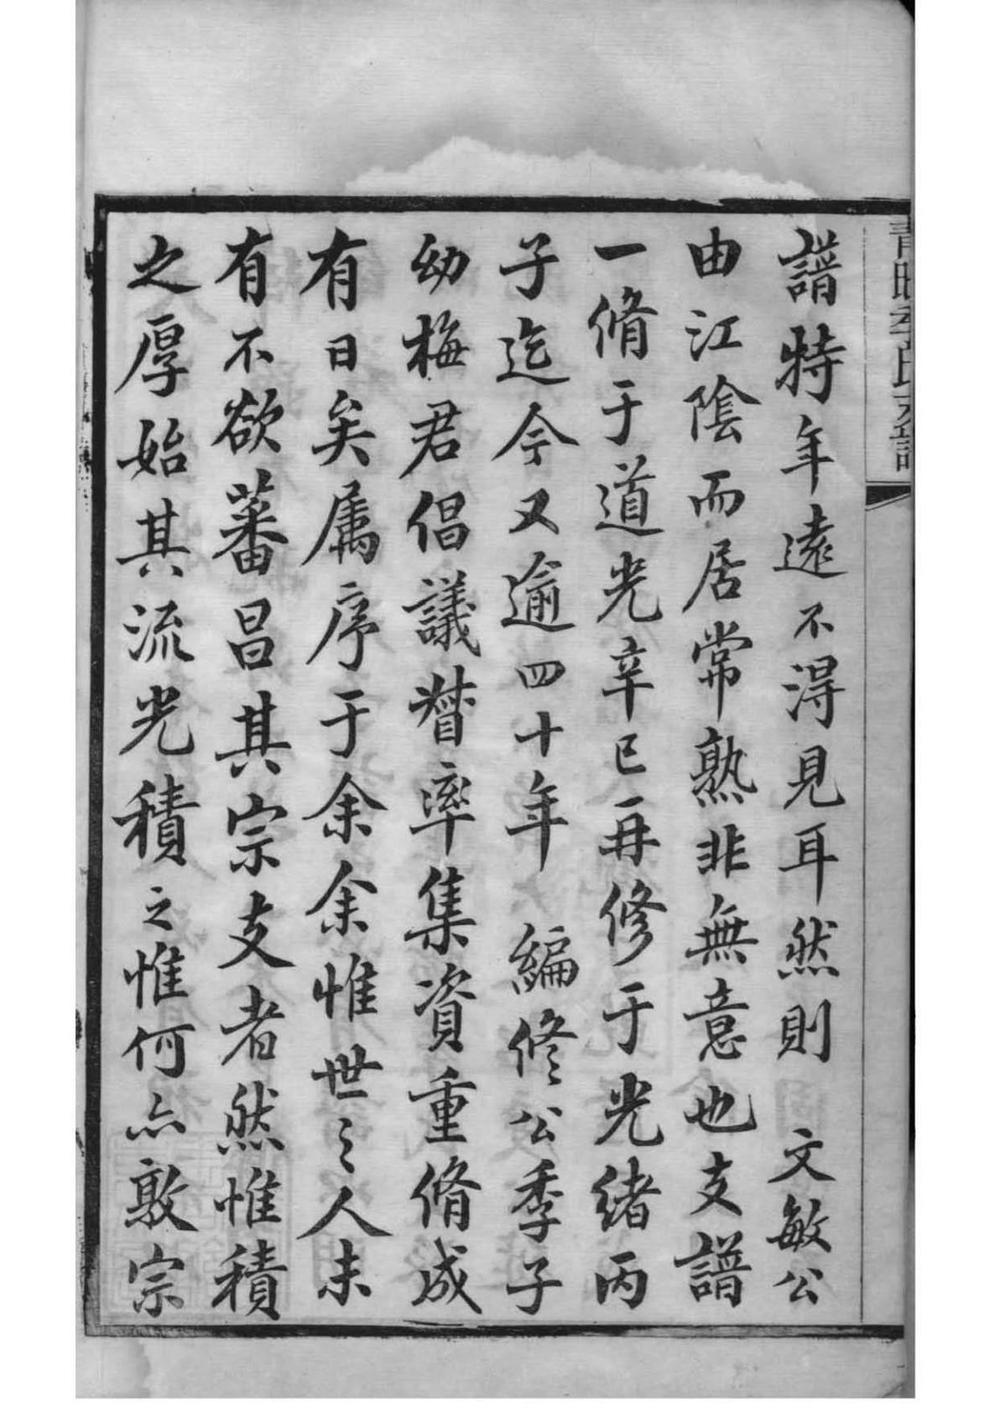 譜特年遠不得見耳然則 文敏公
由江陰而居常熟非無意也支譜
一脩于道光辛巳再修于光緒丙
子迄今又逾四十年 編修公季子
幼梅君倡議督率集資重脩成
有日矣属序于余余惟世〻人未
有不欲蕃昌其宗支者然惟積
之厚始其流光積之惟何亦敦宗